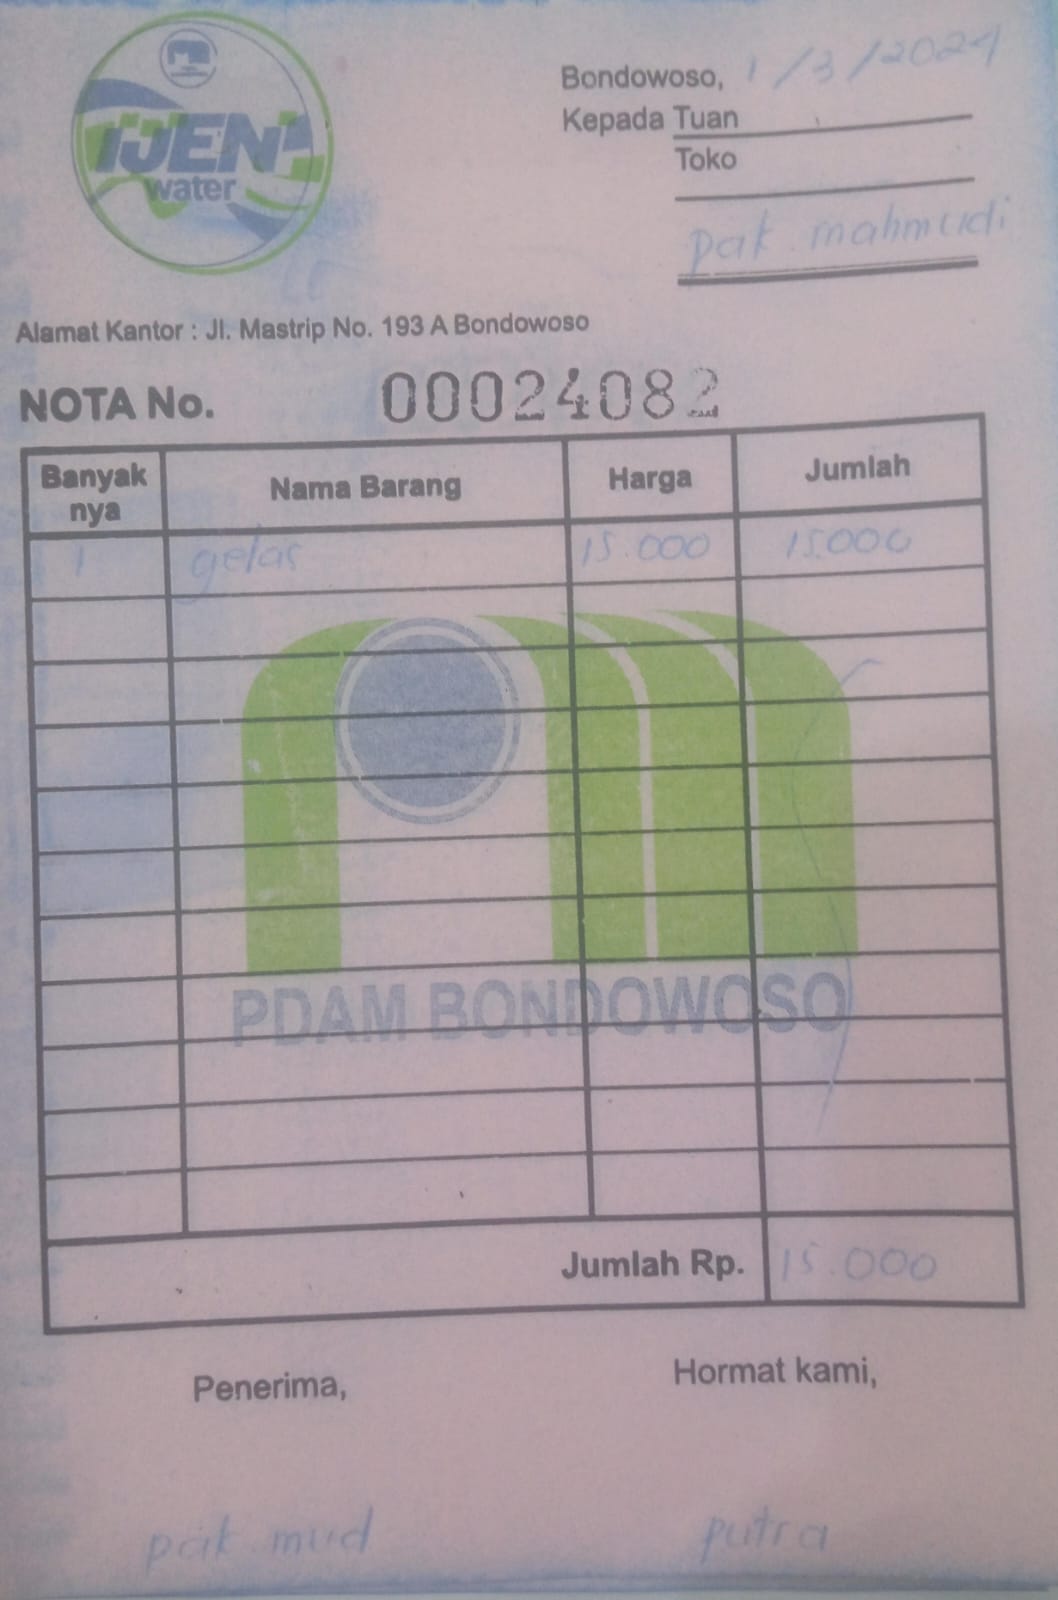 IJEN
water
Bondowoso, 1/3/2024
Kepada Tuan
Toko
pak mahmudi
Alamat Kantor : Jl. Mastrip No. 193 A Bondowoso
NOTA No. 00024082
Banyak nya Nama Barang Harga Jumlah
1 gelas 15.000 15.000
PDAM BONDOWOSO
Jumlah Rp. 15.000
Penerima, Hormat kami,
pak mud putra